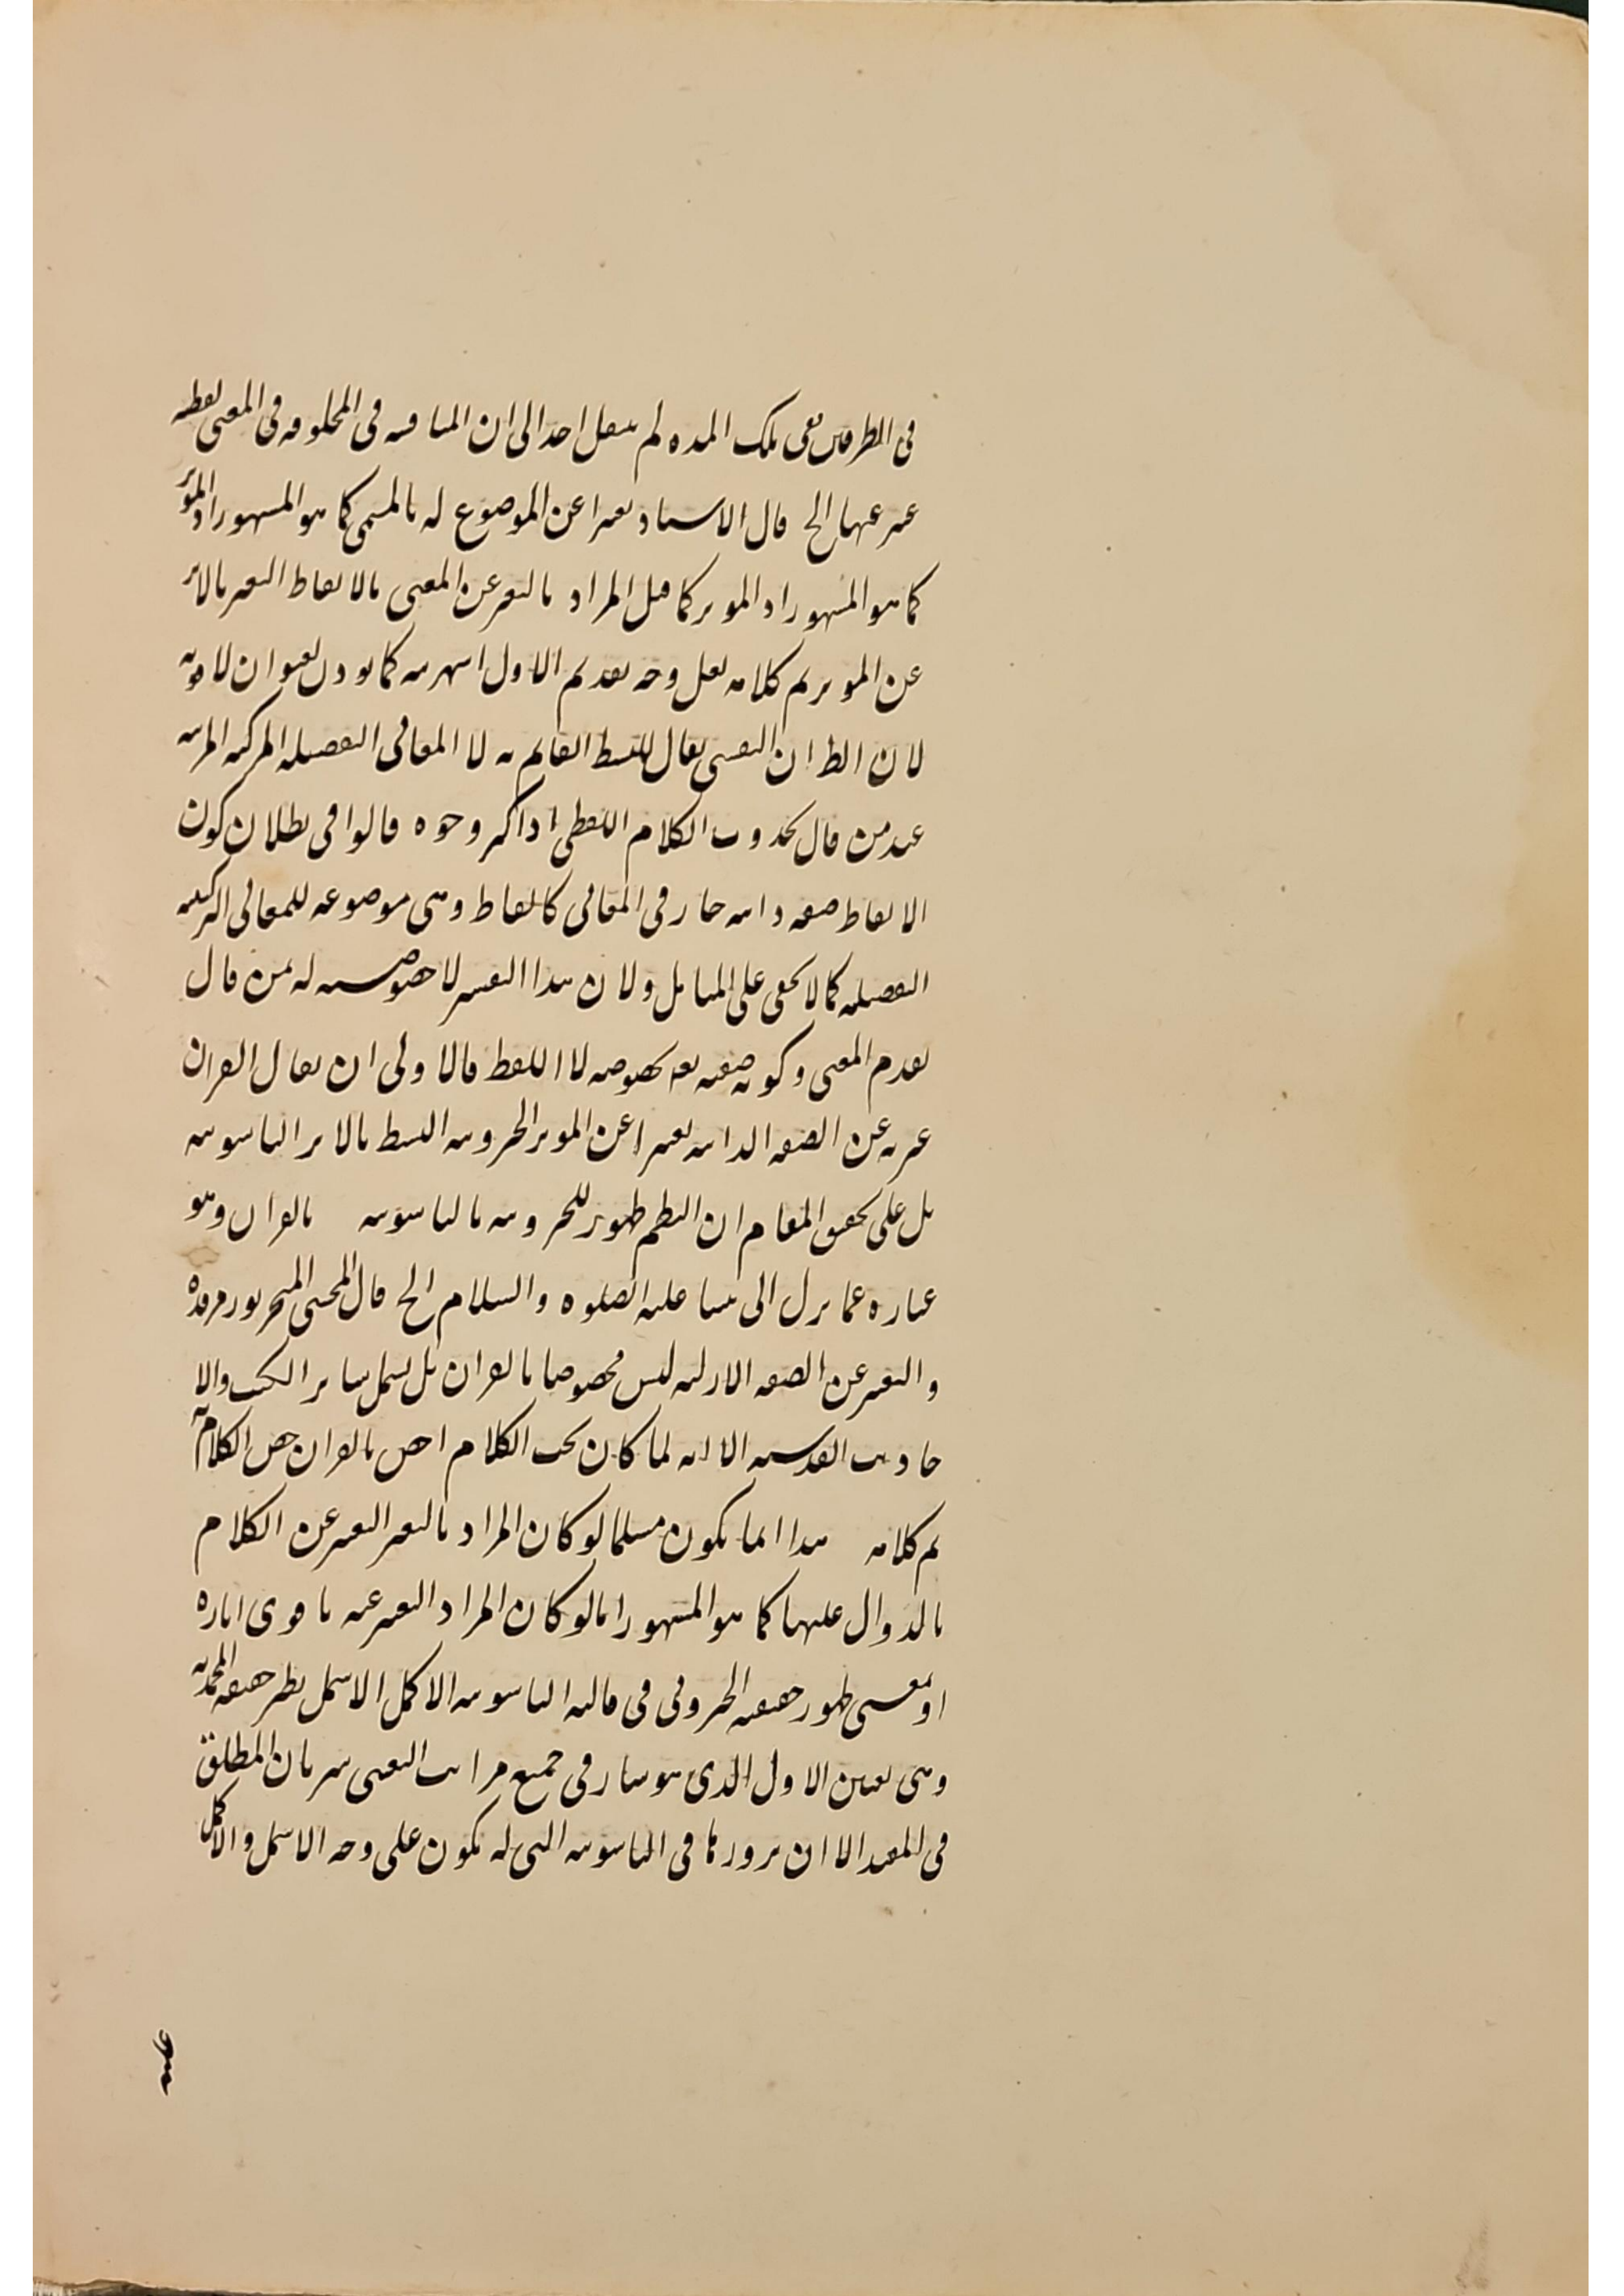 في الطرفين ففي تلك المدة لم ينتقل احد الى ان المنافسة في المخلوقة في المعنى لفظية
عبر عنها الخ قال الاستاد تعبيرا عن الموضوع له بالمسمى كما هو المشهور او المؤثر
كما هو المشهور او المؤثر كما قيل المراد بالتعبير عن المعنى بالالفاظ التعبير بالاثر
عن المؤثر تم كلامه لعل وجه تقديم الاول اشهريته كما يوذن بعنوان لا قوته
لان الظ ان النفسي يقال للبسيط القايم به لا المعاني التفصيلية المركبة المرتبة
عند من قال بحدوث الكلام اللفظي اذ اكثر وجوه قالوا في بطلان كون
الالفاظ صفة ذاتية جار في المعاني كالفاظ وهي موضوعة للمعاني التركيبية
التفصيلية كما لا يخفى على المتامل ولان هذا التعبير لا خصوصية له بمن قال
بقدم المعنى وكونه صفته تعه بخصوصه لا اللفظ فالاولى ان يقال القران
عبر به عن الصفة الذاتية تعبيرا عن المؤثر الجبروتية البسيط بالاثر الناسوتية
بل على تحقيق المقام ان النظم ظهور للجبروتية بالناسوتية بالقران وهو
عبارة عما نزل الى نبينا عليه الصلوة والسلام الخ قال المحشي المتبحر نور مرقده
والتعبير عن الصفة الازلية ليس مخصوصا بالقران بل يشمل ساير الكتب والا
حاديث القدسية الا انه لما كان بحث الكلام اخص بالقران خص الكلام به
تم كلامه هذا انما يكون مسلما لو كان المراد بالتعبير التعبير عن الكلام
بالدوال عليها كما هو المشهور اما لو كان المراد التعبير عنه باقوى اثاره
او بمعنى ظهور حقيقة الجبروتي في قالبه الناسوتية الاكمل الاشمل نظير حقيقة المحمدية
وهي تعين الاول الذي هو سار في جميع مراتب التعين سريان المطلق
في المقيد الا ان بروزها في الناسوتية التي له يكون على وجه الاشمل والاكمل
عليه